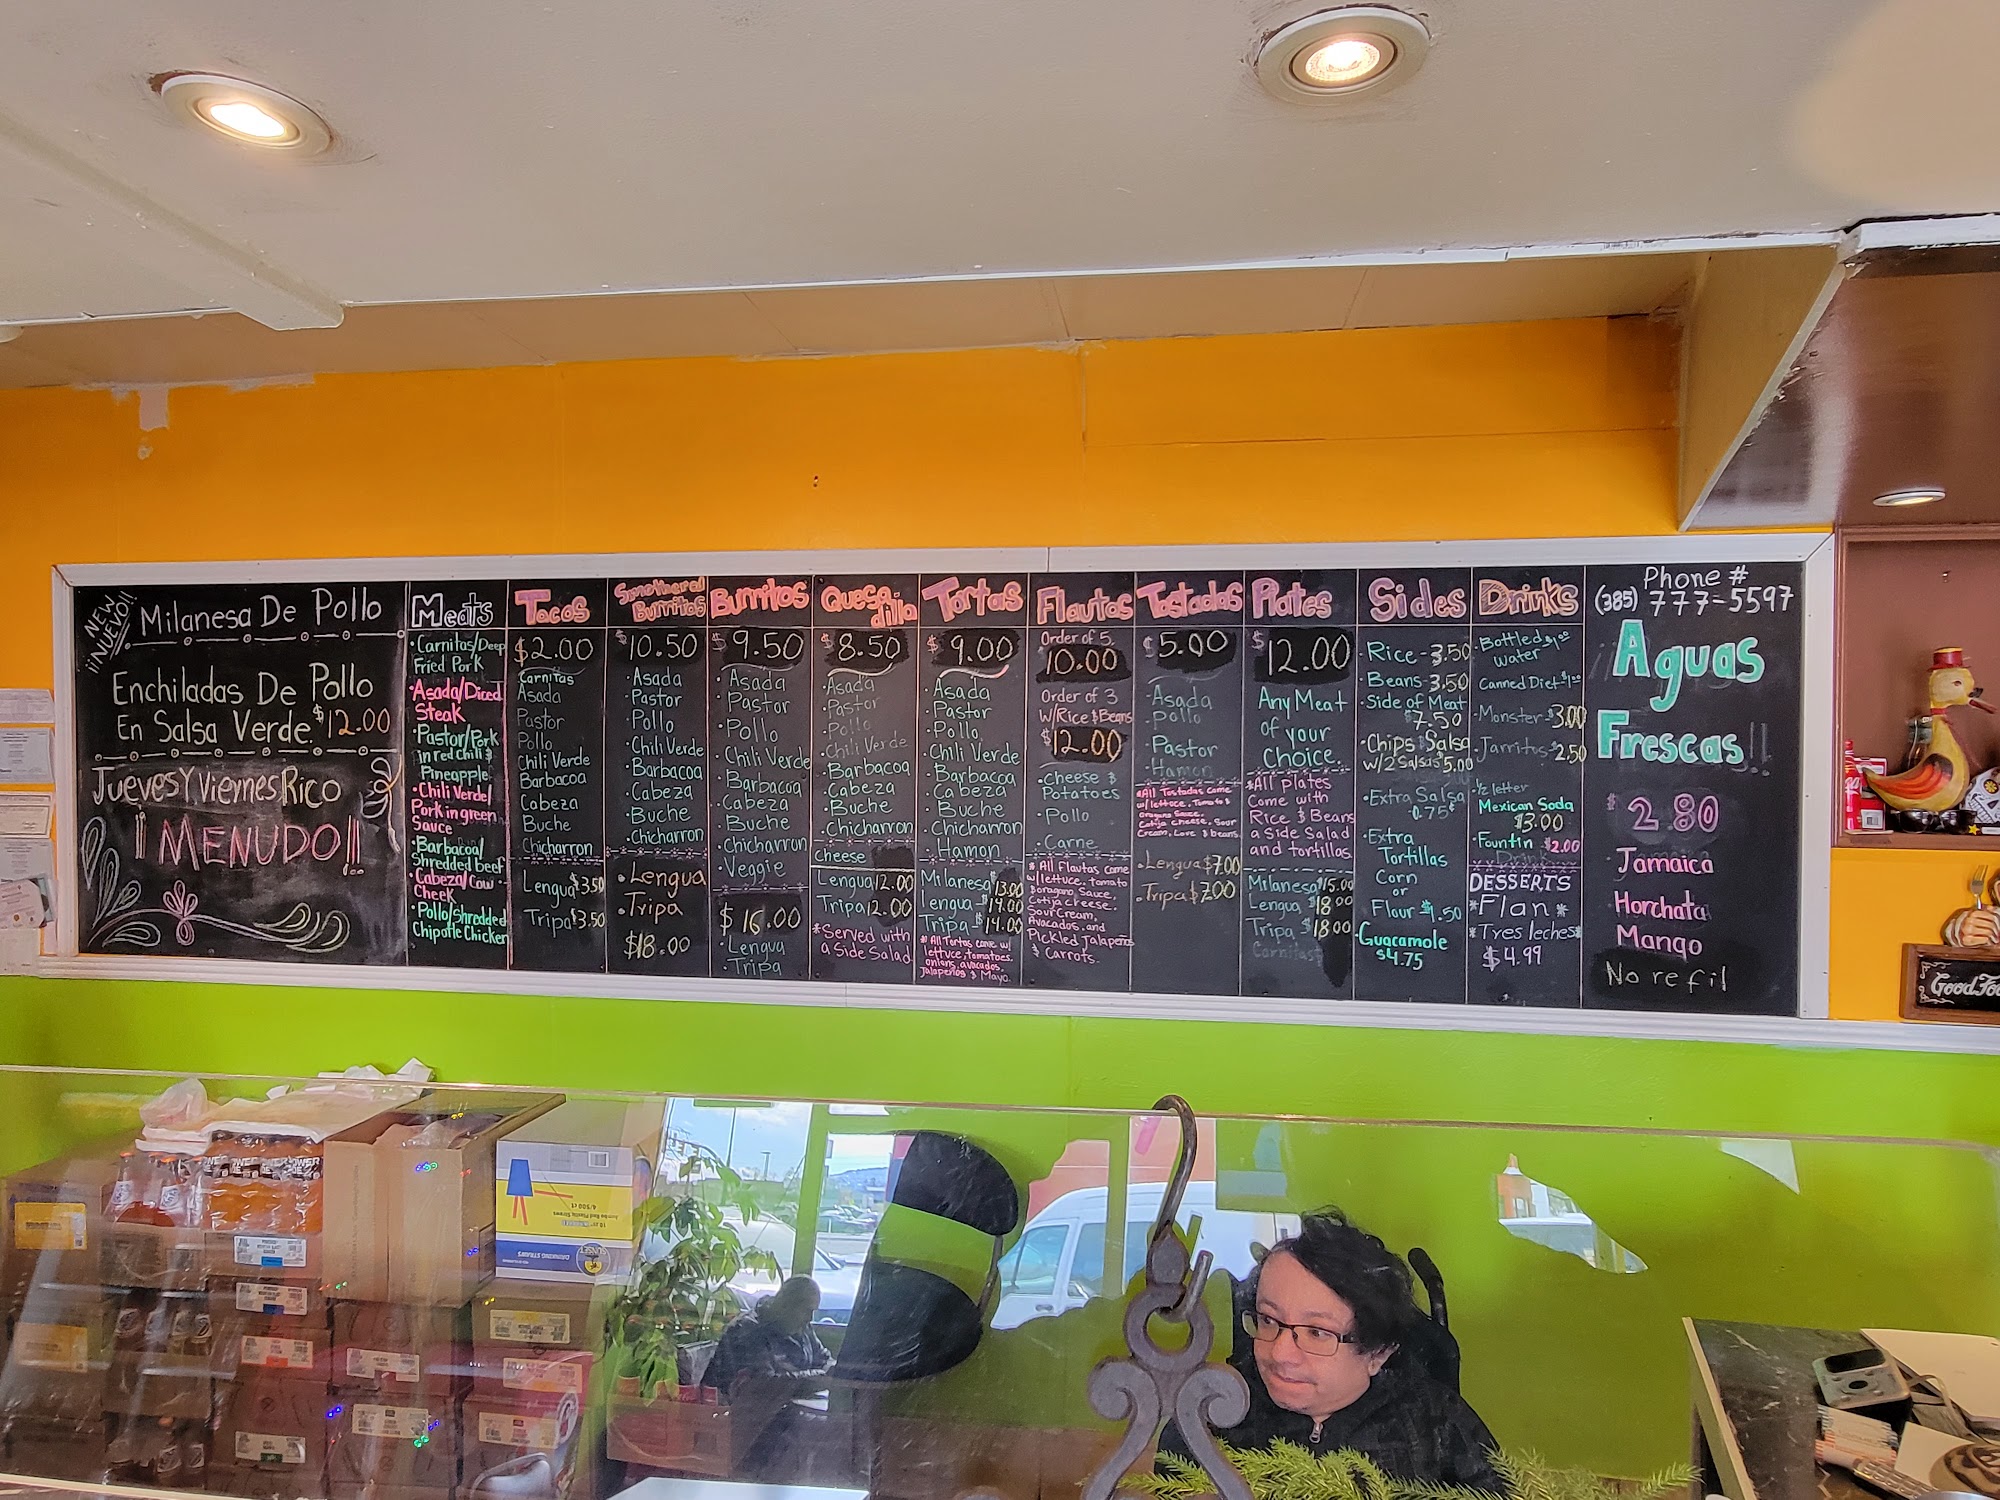 NEW
¡¡NUEVO!!
Milanesa De Pollo
Enchiladas De Pollo
En Salsa Verde $12.00
Jueves Y Viernes Rico
¡¡MENUDO!!
Meats
•Carnitas/Deep
Fried Pork
•Asada/Diced
Steak
•Pastor/Pork
in red Chili $
Pineapple
•Chili Verde/
Pork in green
Sauce
•Barbacoa/
Shredded beef
•Cabeza/Cow
Cheek
•Pollo/Shredded
Chipotle Chicken
Tacos
$2.00
Carnitas
Asada
Pastor
Pollo
Chili Verde
Barbacoa
Cabeza
Buche
Chicharron
Lengua $3.50
Tripa $3.50
Smothered
Burritos
$10.50
•Asada
•Pastor
•Pollo
•Chili Verde
•Barbacoa
•Cabeza
•Buche
•Chicharron
•Lengua
•Tripa
$18.00
Burritos
$9.50
•Asada
•Pastor
•Pollo
•Chili Verde
•Barbacoa
•Cabeza
•Buche
•Chicharron
•Veggie
$16.00
•Lengua
•Tripa
Quesa
dilla
$8.50
•Asada
•Pastor
•Pollo
•Chili Verde
•Barbacoa
•Cabeza
•Buche
•Chicharron
Cheese
Lengua 12.00
Tripa 12.00
*Served with
a Side Salad
Tortas
$9.00
•Asada
•Pastor
•Pollo
•Chili Verde
•Barbacoa
•Cabeza
•Buche
•Chicharron
•Hamon
Milanesa 13.00
Lengua 14.00
Tripa 14.00
* All Tortas come w/
lettuce, tomatoes,
onions, avocados,
Jalapeños & Mayo.
Flautas
Order of 5.
10.00
Order of 3
W/Rice $ Beans
$12.00
•Cheese $
Potatoes
•Pollo
•Carne
* All Flautas come
w/lettuce, tomato
Sauce,
Cotija cheese,
Sour Cream,
Avocados, and
Pickled Jalapeños
$ Carrots.
Tostadas
$5.00
•Asada
•Pollo
•Pastor
•Hamon
*All Tostadas come
w/lettuce, Tomato $
Sauce,
Cotija Cheese, Sour
Cream, $ beans.
•Lengua $7.00
•Tripa $7.00
Plates
$12.00
Any Meat
of your
Choice.
*All plates
Come with
Rice $ Beans
a Side Salad
and tortillas.
Milanesa $15.00
Lengua $18.00
Tripa $18.00
Carnitas
Sides
•Rice-3.50
•Beans-3.50
•Side of Meat
$7.50
•Chips $ Salsa
w/2 Salsas $5.00
•Extra Salsa
0.75¢
•Extra
Tortillas
Corn
or
Flour $1.50
•Guacamole
$4.75
Drinks
•Bottled $1.00
Water
Canned Diet $1.00
•Monster $3.00
•Jarritos $2.50
•½ letter
Mexican Soda
$3.00
•Fountin $2.00
Drink
DESSERTS
*Flan*
*Tres leches*
$4.99
Phone #
(385) 777-5597
Aguas
Frescas!!
$2.80
Jamaica
Horchata
Mango
No refil
Good Foo
Jumbo Red Plastic Straws
DRINKING STRAWS
SUNSET